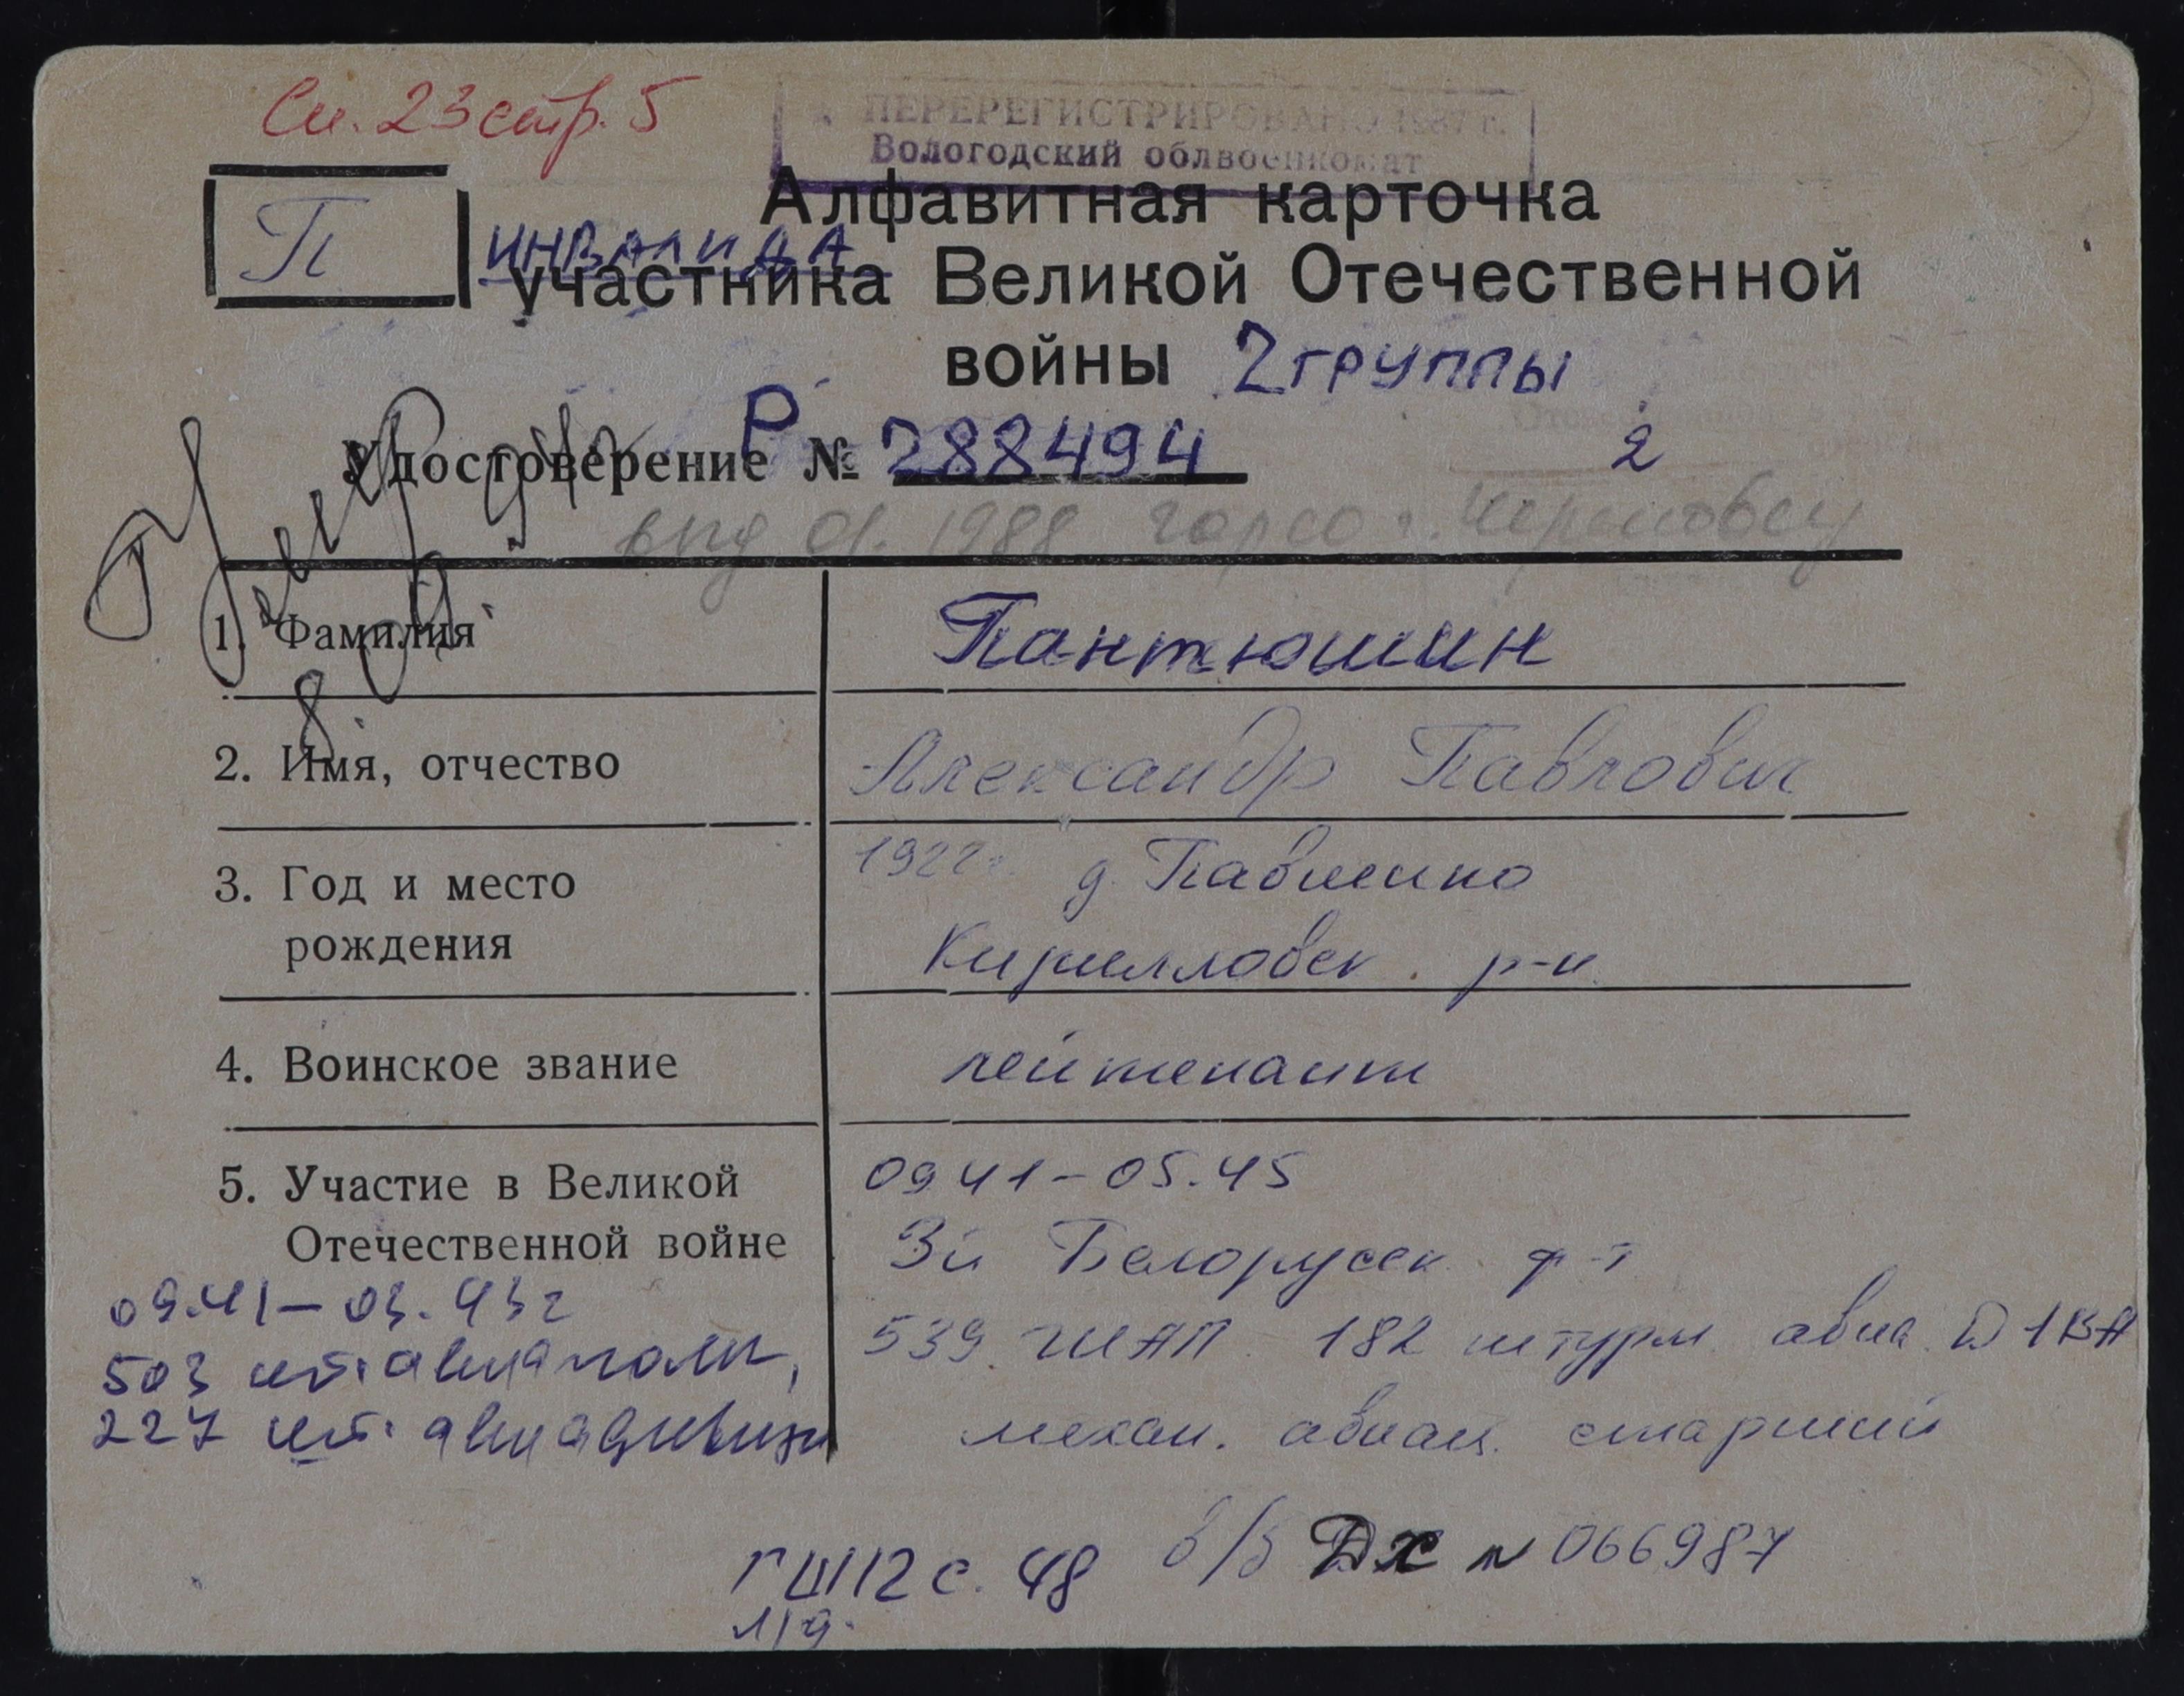 Сп. 23 стр. 5
ПЕРЕРЕГИСТРИРОВАНО 1987 г.
Вологодский облвоенкомат
Алфавитная карточка
П
ИНВАЛИДА
участника Великой Отечественной
войны 2 группы
Удостоверение Р № 288494
2
выд 01. 1988 горсо г. Череповец
1. Фамилия Пантюшин
2. Имя, отчество Александр Павлович
3. Год и место 1922 г. д. Павшино
рождения Кирилловск. р-н
4. Воинское звание лейтенант
5. Участие в Великой 09 41 - 05.45
Отечественной войне 3й Белорусск. ф-т
09.41 - 03.43 г
503 шт. авиаполк, 539 ШАП 182 штурм. авиа. D 1 ВА
227 шт. авиадивизи механ. авиац. старший
ГШ12 с. 48 в/б ДХ N 066987
л/д.